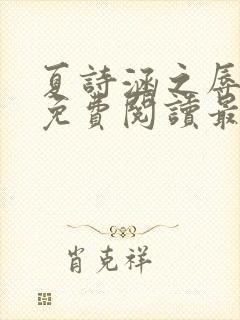 夏詩涵之辱
免費閱讀最
肖克祥